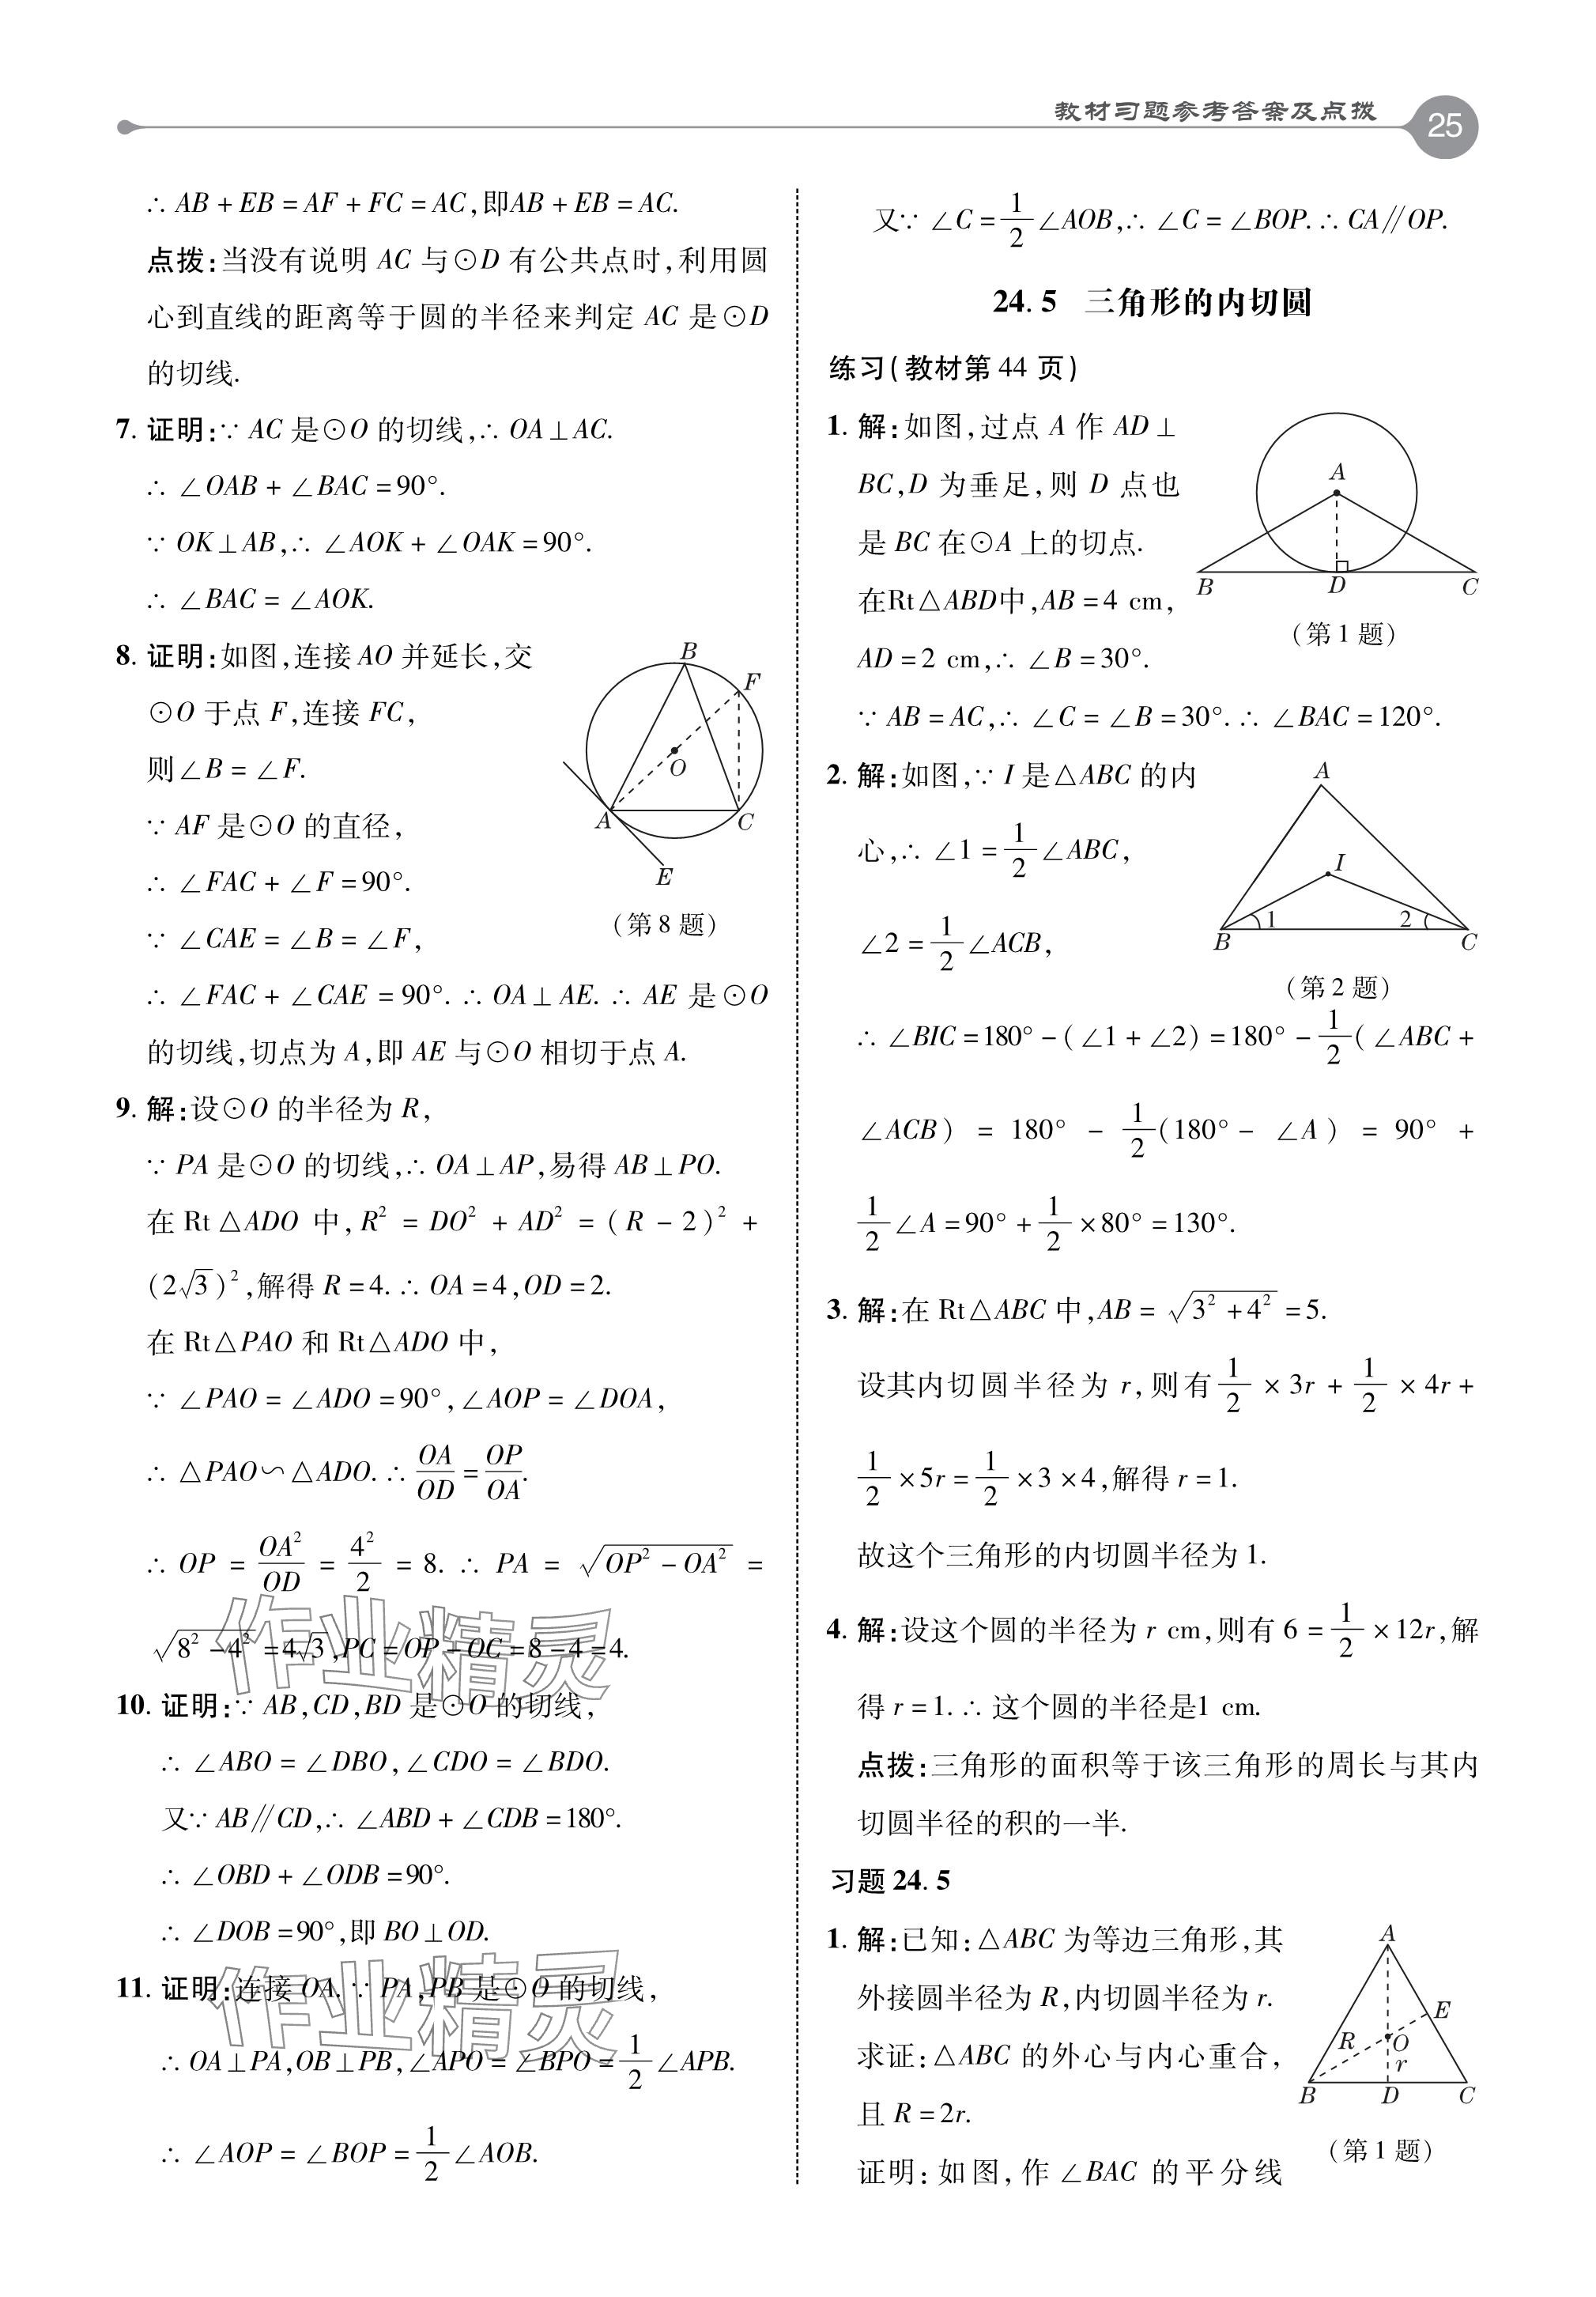 教材习题参考答案及点拨
25
∴ AB + EB = AF + FC = AC,即AB + EB = AC.
点拨:当没有说明 AC 与⊙D 有公共点时,利用圆
心到直线的距离等于圆的半径来判定 AC 是⊙D
的切线.
7. 证明:∵ AC 是⊙O 的切线,∴ OA⊥AC.
∴ ∠OAB + ∠BAC = 90°.
∵ OK⊥AB,∴ ∠AOK + ∠OAK = 90°.
∴ ∠BAC = ∠AOK.
8. 证明:如图,连接 AO 并延长,交
⊙O 于点 F,连接 FC,
则∠B = ∠F.
∵ AF 是⊙O 的直径,
∴ ∠FAC + ∠F = 90°.
∵ ∠CAE = ∠B = ∠F,
B
F
O
A
C
E
(第 8 题)
∴ ∠FAC + ∠CAE = 90°. ∴ OA⊥AE. ∴ AE 是⊙O
的切线,切点为 A,即 AE 与⊙O 相切于点 A.
9. 解:设⊙O 的半径为 R,
∵ PA 是⊙O 的切线,∴ OA⊥AP,易得 AB⊥PO.
在 Rt△ADO 中, R² = DO² + AD² = (R - 2)² +
(2√3)²,解得 R = 4. ∴ OA = 4,OD = 2.
在 Rt△PAO 和 Rt△ADO 中,
∵ ∠PAO = ∠ADO = 90°,∠AOP = ∠DOA,
∴ △PAO∽△ADO. ∴ OA/OD = OP/OA.
∴ OP = OA²/OD = 4²/2 = 8. ∴ PA = √(OP² - OA²) =
√(8² - 4²) = 4√3,PC = OP - OC = 8 - 4 = 4.
10. 证明:∵ AB,CD,BD 是⊙O 的切线,
∴ ∠ABO = ∠DBO,∠CDO = ∠BDO.
又∵ AB∥CD,∴ ∠ABD + ∠CDB = 180°.
∴ ∠OBD + ∠ODB = 90°.
∴ ∠DOB = 90°,即 BO⊥OD.
11. 证明:连接 OA. ∵ PA,PB 是⊙O 的切线,
∴ OA⊥PA,OB⊥PB,∠APO = ∠BPO = 1/2 ∠APB.
∴ ∠AOP = ∠BOP = 1/2 ∠AOB.
作业精灵
作业精灵
又∵ ∠C = 1/2 ∠AOB,∴ ∠C = ∠BOP. ∴ CA∥OP.
24.5 三角形的内切圆
练习(教材第 44 页)
1. 解:如图,过点 A 作 AD⊥
BC,D 为垂足,则 D 点也
是 BC 在⊙A 上的切点.
在Rt△ABD中,AB = 4 cm,
AD = 2 cm,∴ ∠B = 30°.
A
B
D
C
(第 1 题)
∵ AB = AC,∴ ∠C = ∠B = 30°. ∴ ∠BAC = 120°.
2. 解:如图,∵ I 是△ABC 的内
心,∴ ∠1 = 1/2 ∠ABC,
∠2 = 1/2 ∠ACB,
A
I
1
2
B
C
(第 2 题)
∴ ∠BIC = 180° - (∠1 + ∠2) = 180° - 1/2 (∠ABC +
∠ACB) = 180° - 1/2 (180° - ∠A) = 90° +
1/2 ∠A = 90° + 1/2 × 80° = 130°.
3. 解:在 Rt△ABC 中,AB = √(3² + 4²) = 5.
设其内切圆半径为 r,则有 1/2 × 3r + 1/2 × 4r +
1/2 × 5r = 1/2 × 3 × 4,解得 r = 1.
故这个三角形的内切圆半径为 1.
4. 解:设这个圆的半径为 r cm,则有 6 = 1/2 × 12r,解
得 r = 1. ∴ 这个圆的半径是1 cm.
点拨:三角形的面积等于该三角形的周长与其内
切圆半径的积的一半.
习题 24.5
1. 解:已知:△ABC 为等边三角形,其
外接圆半径为 R,内切圆半径为 r.
求证:△ABC 的外心与内心重合,
且 R = 2r.
证明:如图,作 ∠BAC 的平分线
A
E
R
O
r
B
D
C
(第 1 题)